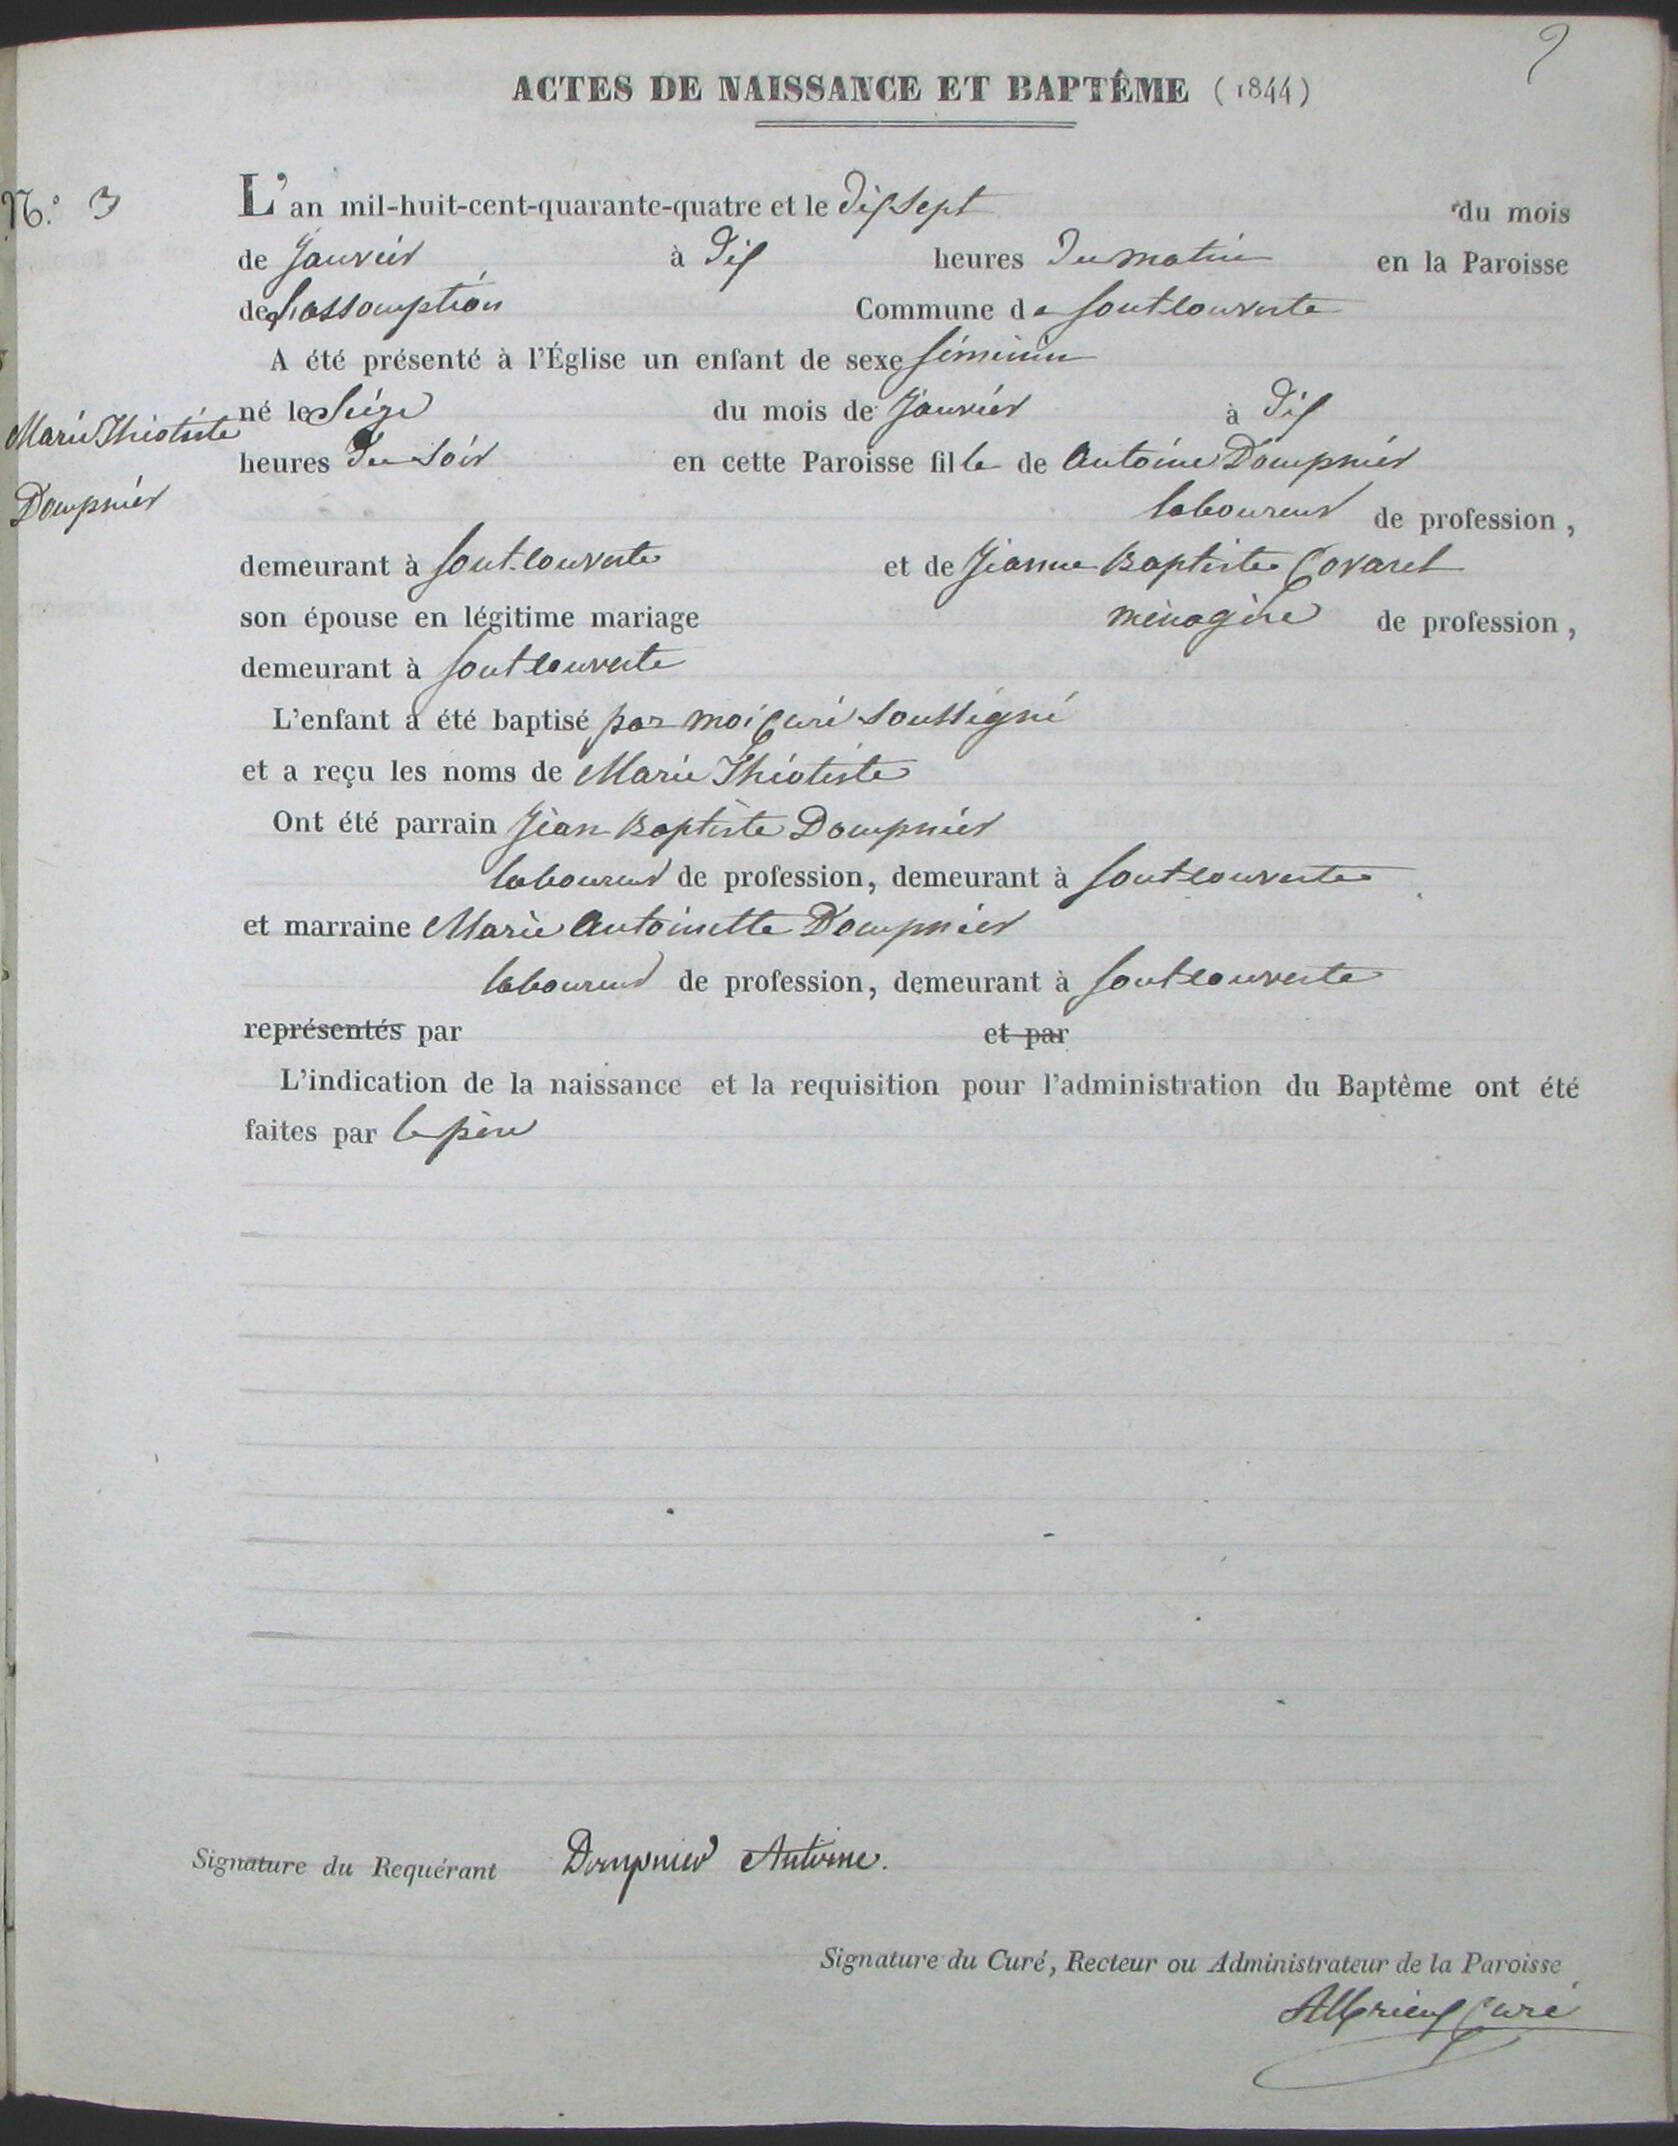 2
ACTES DE NAISSANCE ET BAPTÊME (1844)
N.° 3
L'an mil-huit-cent-quarante-quatre et le dix sept du mois
de janvier à dix heures du matin en la Paroisse
de L'assomption Commune de fontcouverte
A été présenté à l'Église un enfant de sexe féminin
né le Seize du mois de janvier à dix
heures du soir en cette Paroisse fille de Antoine Dompnier
laboureur de profession,
demeurant à fontcouverte et de Jeanne Baptiste Covarel
son épouse en légitime mariage ménagère de profession,
demeurant à fontcouverte
L'enfant a été baptisé par moi Curé soussigné
et a reçu les noms de Marie Théotiste
Ont été parrain Jean Baptiste Dompnier
laboureur de profession, demeurant à fontcouverte
et marraine Marie Antoinette Dompnier
laboureur de profession, demeurant à fontcouverte
représentés par et par
L'indication de la naissance et la requisition pour l'administration du Baptême ont été
faites par le père
Marie Théotiste
Dompnier
Signature du Requérant Dompnier Antoine.
Signature du Curé, Recteur ou Administrateur de la Paroisse
Curé